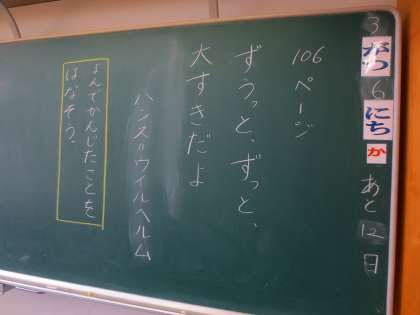 3がつ6にちかあと12日
106ページ
ずうっと、ずっと、
大すきだよ
ハンス=ウイルヘルム
よんでかんじたことを
はなそう。